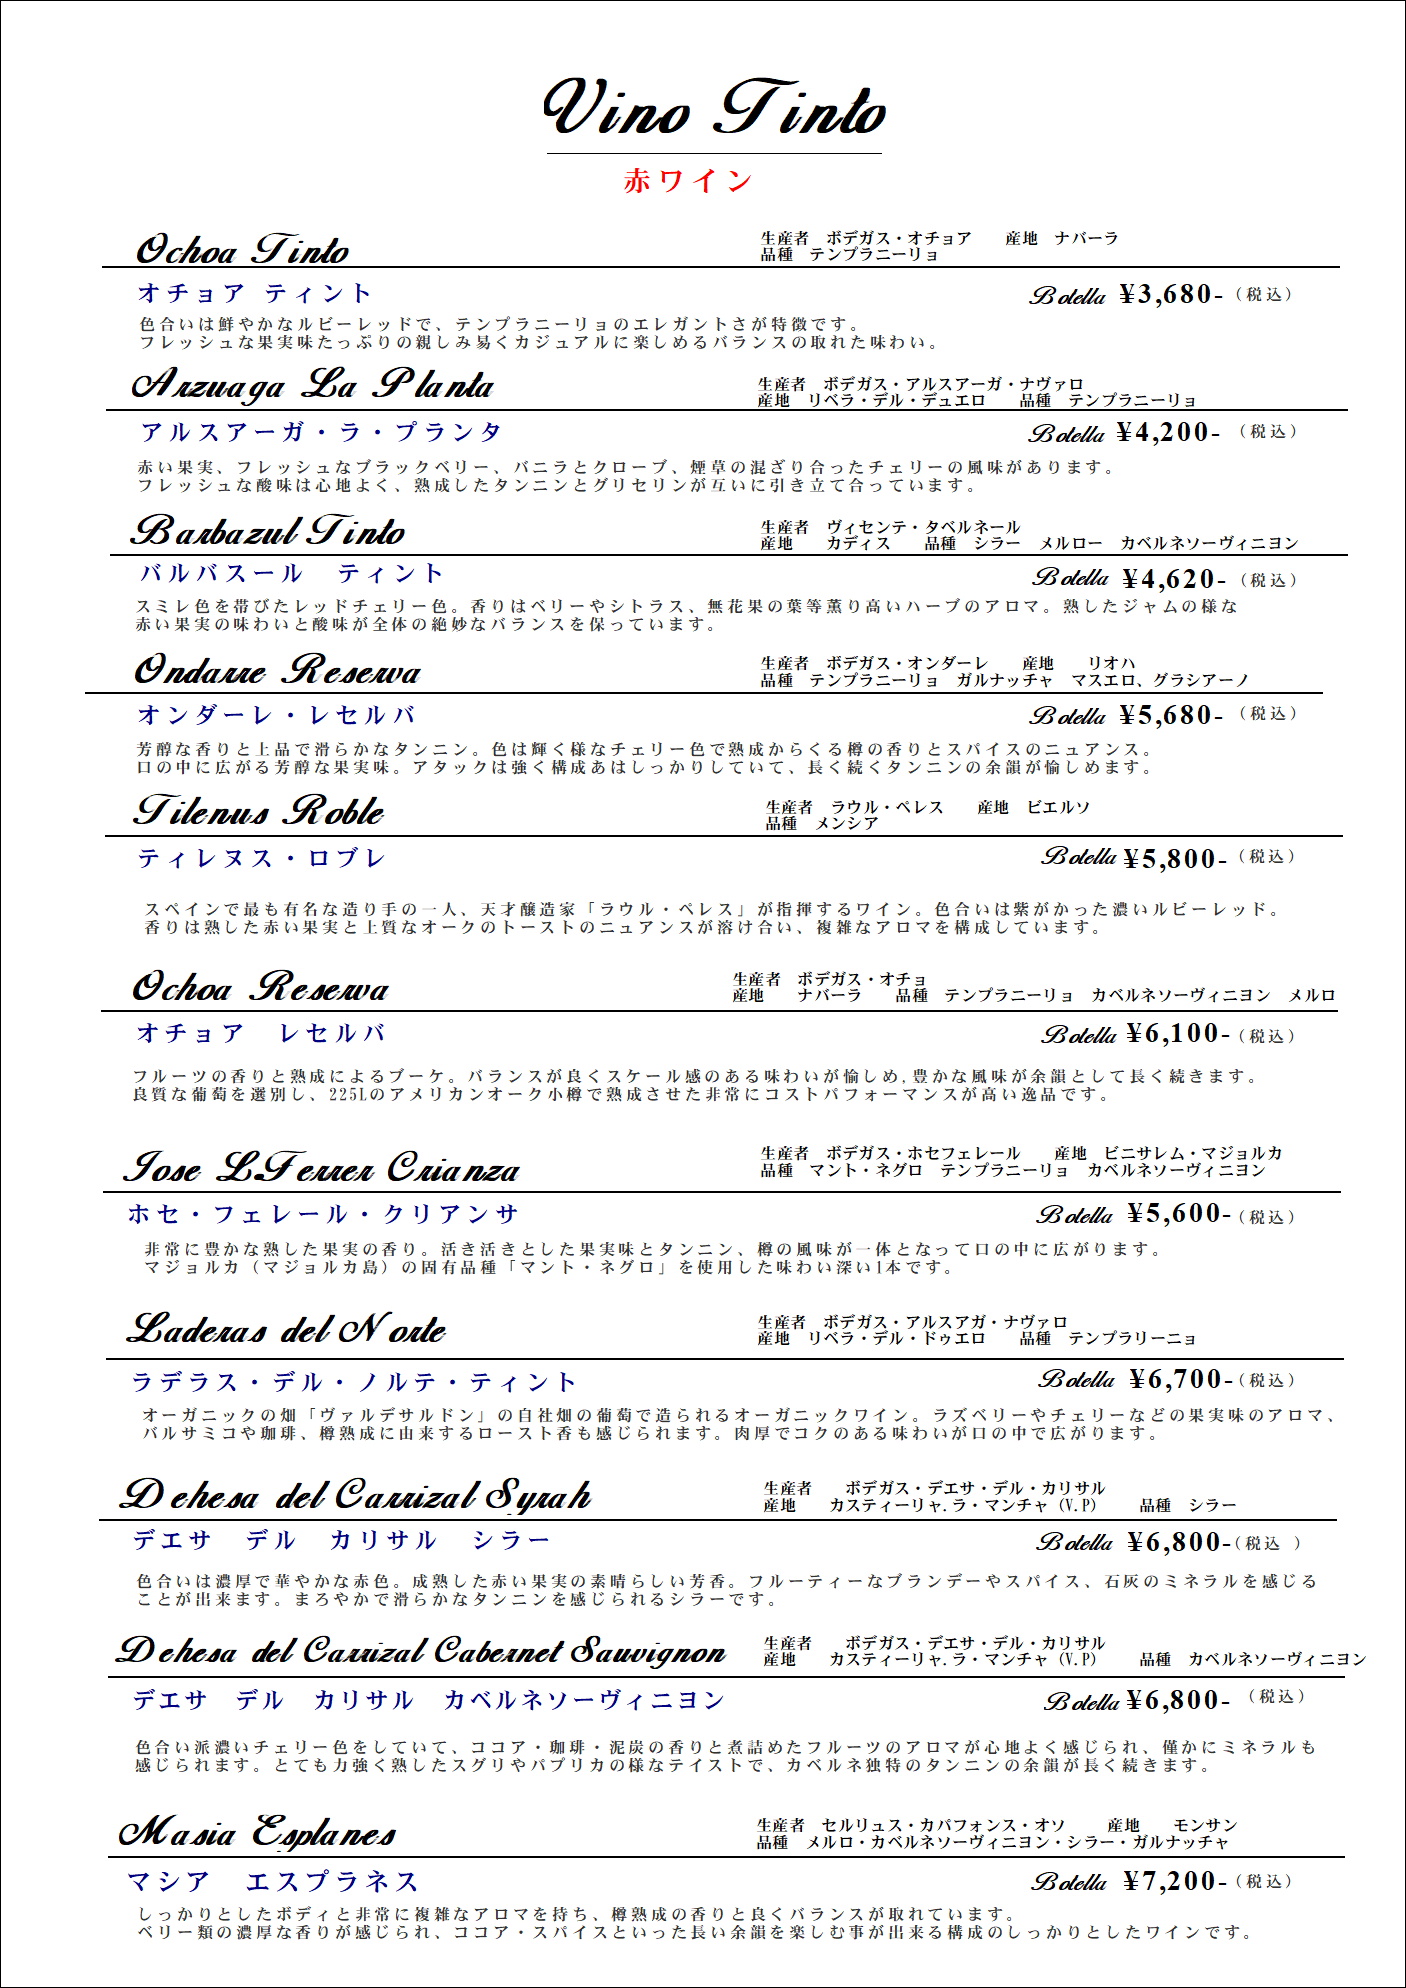 Vino Tinto
赤ワイン
Ochoa Tinto
生産者　ボデガス・オチョア　　産地　ナバーラ
品種　テンプラニーリョ
オチョア ティント
Botella ¥3,680-（税込）
色合いは鮮やかなルビーレッドで、テンプラニーリョのエレガントさが特徴です。
フレッシュな果実味たっぷりの親しみ易くカジュアルに楽しめるバランスの取れた味わい。
Arzuaga La Planta
生産者　ボデガス・アルスアーガ・ナヴァロ
産地　リベラ・デル・デュエロ　　品種　テンプラニーリョ
アルスアーガ・ラ・プランタ
Botella ¥4,200-（税込）
赤い果実、フレッシュなブラックベリー、バニラとクローブ、煙草の混ざり合ったチェリーの風味があります。
フレッシュな酸味は心地よく、熟成したタンニンとグリセリンが互いに引き立て合っています。
Barbazul Tinto
生産者　ヴィセンテ・タベルネール
産地　　カディス　　品種　シラー　メルロー　カベルネソーヴィニヨン
バルバスール　ティント
Botella ¥4,620-（税込）
スミレ色を帯びたレッドチェリー色。香りはベリーやシトラス、無花果の葉等薫り高いハーブのアロマ。熟したジャムの様な
赤い果実の味わいと酸味が全体の絶妙なバランスを保っています。
Ondarre Reserva
生産者　ボデガス・オンダーレ　　産地　　リオハ
品種　テンプラニーリョ　ガルナッチャ　マスエロ、グラシアーノ
オンダーレ・レセルバ
Botella ¥5,680-（税込）
芳醇な香りと上品で滑らかなタンニン。色は輝く様なチェリー色で熟成からくる樽の香りとスパイスのニュアンス。
口の中に広がる芳醇な果実味。アタックは強く構成あはしっかりしていて、長く続くタンニンの余韻が愉しめます。
Tilenus Roble
生産者　ラウル・ペレス　　産地　ビエルソ
品種　メンシア
ティレヌス・ロブレ
Botella ¥5,800-（税込）
スペインで最も有名な造り手の一人、天才醸造家「ラウル・ペレス」が指揮するワイン。色合いは紫がかった濃いルビーレッド。
香りは熟した赤い果実と上質なオークのトーストのニュアンスが溶け合い、複雑なアロマを構成しています。
Ochoa Reserva
生産者　ボデガス・オチョ
産地　　ナバーラ　　品種　テンプラニーリョ　カベルネソーヴィニヨン　メルロ
オチョア　レセルバ
Botella ¥6,100-（税込）
フルーツの香りと熟成によるブーケ。バランスが良くスケール感のある味わいが愉しめ,豊かな風味が余韻として長く続きます。
良質な葡萄を選別し、225Lのアメリカンオーク小樽で熟成させた非常にコストパフォーマンスが高い逸品です。
Jose L.Ferrer Crianza
生産者　ボデガス・ホセフェレール　　産地　ビニサレム・マジョルカ
品種　マント・ネグロ　テンプラニーリョ　カベルネソーヴィニヨン
ホセ・フェレール・クリアンサ
Botella ¥5,600-（税込）
非常に豊かな熟した果実の香り。活き活きとした果実味とタンニン、樽の風味が一体となって口の中に広がります。
マジョルカ（マジョルカ島）の固有品種「マント・ネグロ」を使用した味わい深い1本です。
Laderas del Norte
生産者　ボデガス・アルスアガ・ナヴァロ
産地　リベラ・デル・ドゥエロ　　品種　テンプラリーニョ
ラデラス・デル・ノルテ・ティント
Botella ¥6,700-（税込）
オーガニックの畑「ヴァルデサルドン」の自社畑の葡萄で造られるオーガニックワイン。ラズベリーやチェリーなどの果実味のアロマ、
バルサミコや珈琲、樽熟成に由来するロースト香も感じられます。肉厚でコクのある味わいが口の中で広がります。
Dehesa del Carrizal Syrah
生産者　　ボデガス・デエサ・デル・カリサル
産地　　カスティーリャ.ラ・マンチャ（V.P）　　品種　シラー
デエサ　デル　カリサル　シラー
Botella ¥6,800-（税込 ）
色合いは濃厚で華やかな赤色。成熟した赤い果実の素晴らしい芳香。フルーティーなブランデーやスパイス、石灰のミネラルを感じる
ことが出来ます。まろやかで滑らかなタンニンを感じられるシラーです。
Dehesa del Carrizal Cabernet Sauvignon
生産者　　ボデガス・デエサ・デル・カリサル
産地　　カスティーリャ.ラ・マンチャ（V.P）　　品種　カベルネソーヴィニヨン
デエサ　デル　カリサル　カベルネソーヴィニヨン
Botella ¥6,800-（税込）
色合い派濃いチェリー色をしていて、ココア・珈琲・泥炭の香りと煮詰めたフルーツのアロマが心地よく感じられ、僅かにミネラルも
感じられます。とても力強く熟したスグリやパプリカの様なテイストで、カベルネ独特のタンニンの余韻が長く続きます。
Masia Esplanes
生産者　セルリュス・カパフォンス・オソ　　産地　　モンサン
品種　メルロ・カベルネソーヴィニヨン・シラー・ガルナッチャ
マシア　エスプラネス
Botella ¥7,200-（税込）
しっかりとしたボディと非常に複雑なアロマを持ち、樽熟成の香りと良くバランスが取れています。
ベリー類の濃厚な香りが感じられ、ココア・スパイスといった長い余韻を楽しむ事が出来る構成のしっかりとしたワインです。